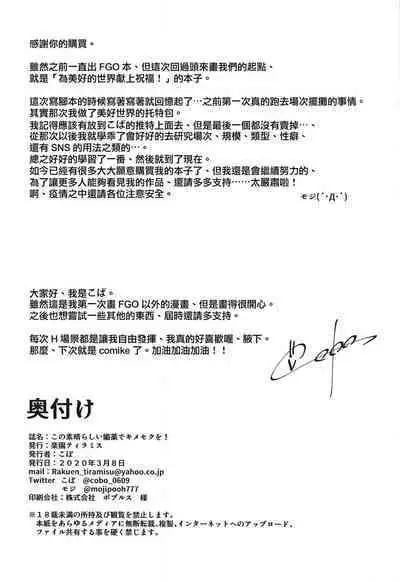 感謝你的購買。
雖然之前一直出 FGO 本、但這次回過頭來畫我們的起點、
就是「為美好的世界獻上祝福！」的本子。
這次寫腳本的時候寫著寫著就回憶起了…之前第一次真的跑去場次擺攤的事情。
其實那次我做了美好世界的托特包。
我記得應該有放到こぱ的推特上面去、但是最後一個都沒有賣掉…、
從那次以後我就學乖了會好好的去研究場次、規模、類型、性癖、
還有 SNS 的用法之類的…。
總之好好的學習了一番、然後就到了現在。
如今已經有很多大大願意購買我的本子了、但我還是會繼續努力的、
為了讓更多人能夠看見我的作品、還請多多支持……太嚴肅啦！
啊、疫情之中還請各位注意安全。
モジ(´･Д･`)
大家好、我是こぱ。
雖然這是我第一次畫 FGO 以外的漫畫、但是畫得很開心。
之後也想嘗試一些其他的東西、屆時還請多支持。
每次 H 場景都是讓我自由發揮、我真的好喜歡喔、腋下。
那麼、下次就是 comike 了。加油加油加油！！
奥付け
誌名：この素晴らしい媚薬でキメセクを！
発行：楽園ティラミス
発行者：こぱ
発行日：２０２０年３月８日
mail：Rakuen_tiramisu@yahoo.co.jp
Twitter こぱ @cobo_0609
モジ @mojipooh777
印刷会社：株式会社 ポプルス 様
※１８歳未満の所持及び観覧を禁止します。
本紙をあらゆるメディアに無断転載、複製、インターネットへのアップロード、
ファイル共有する事を硬く禁じます。